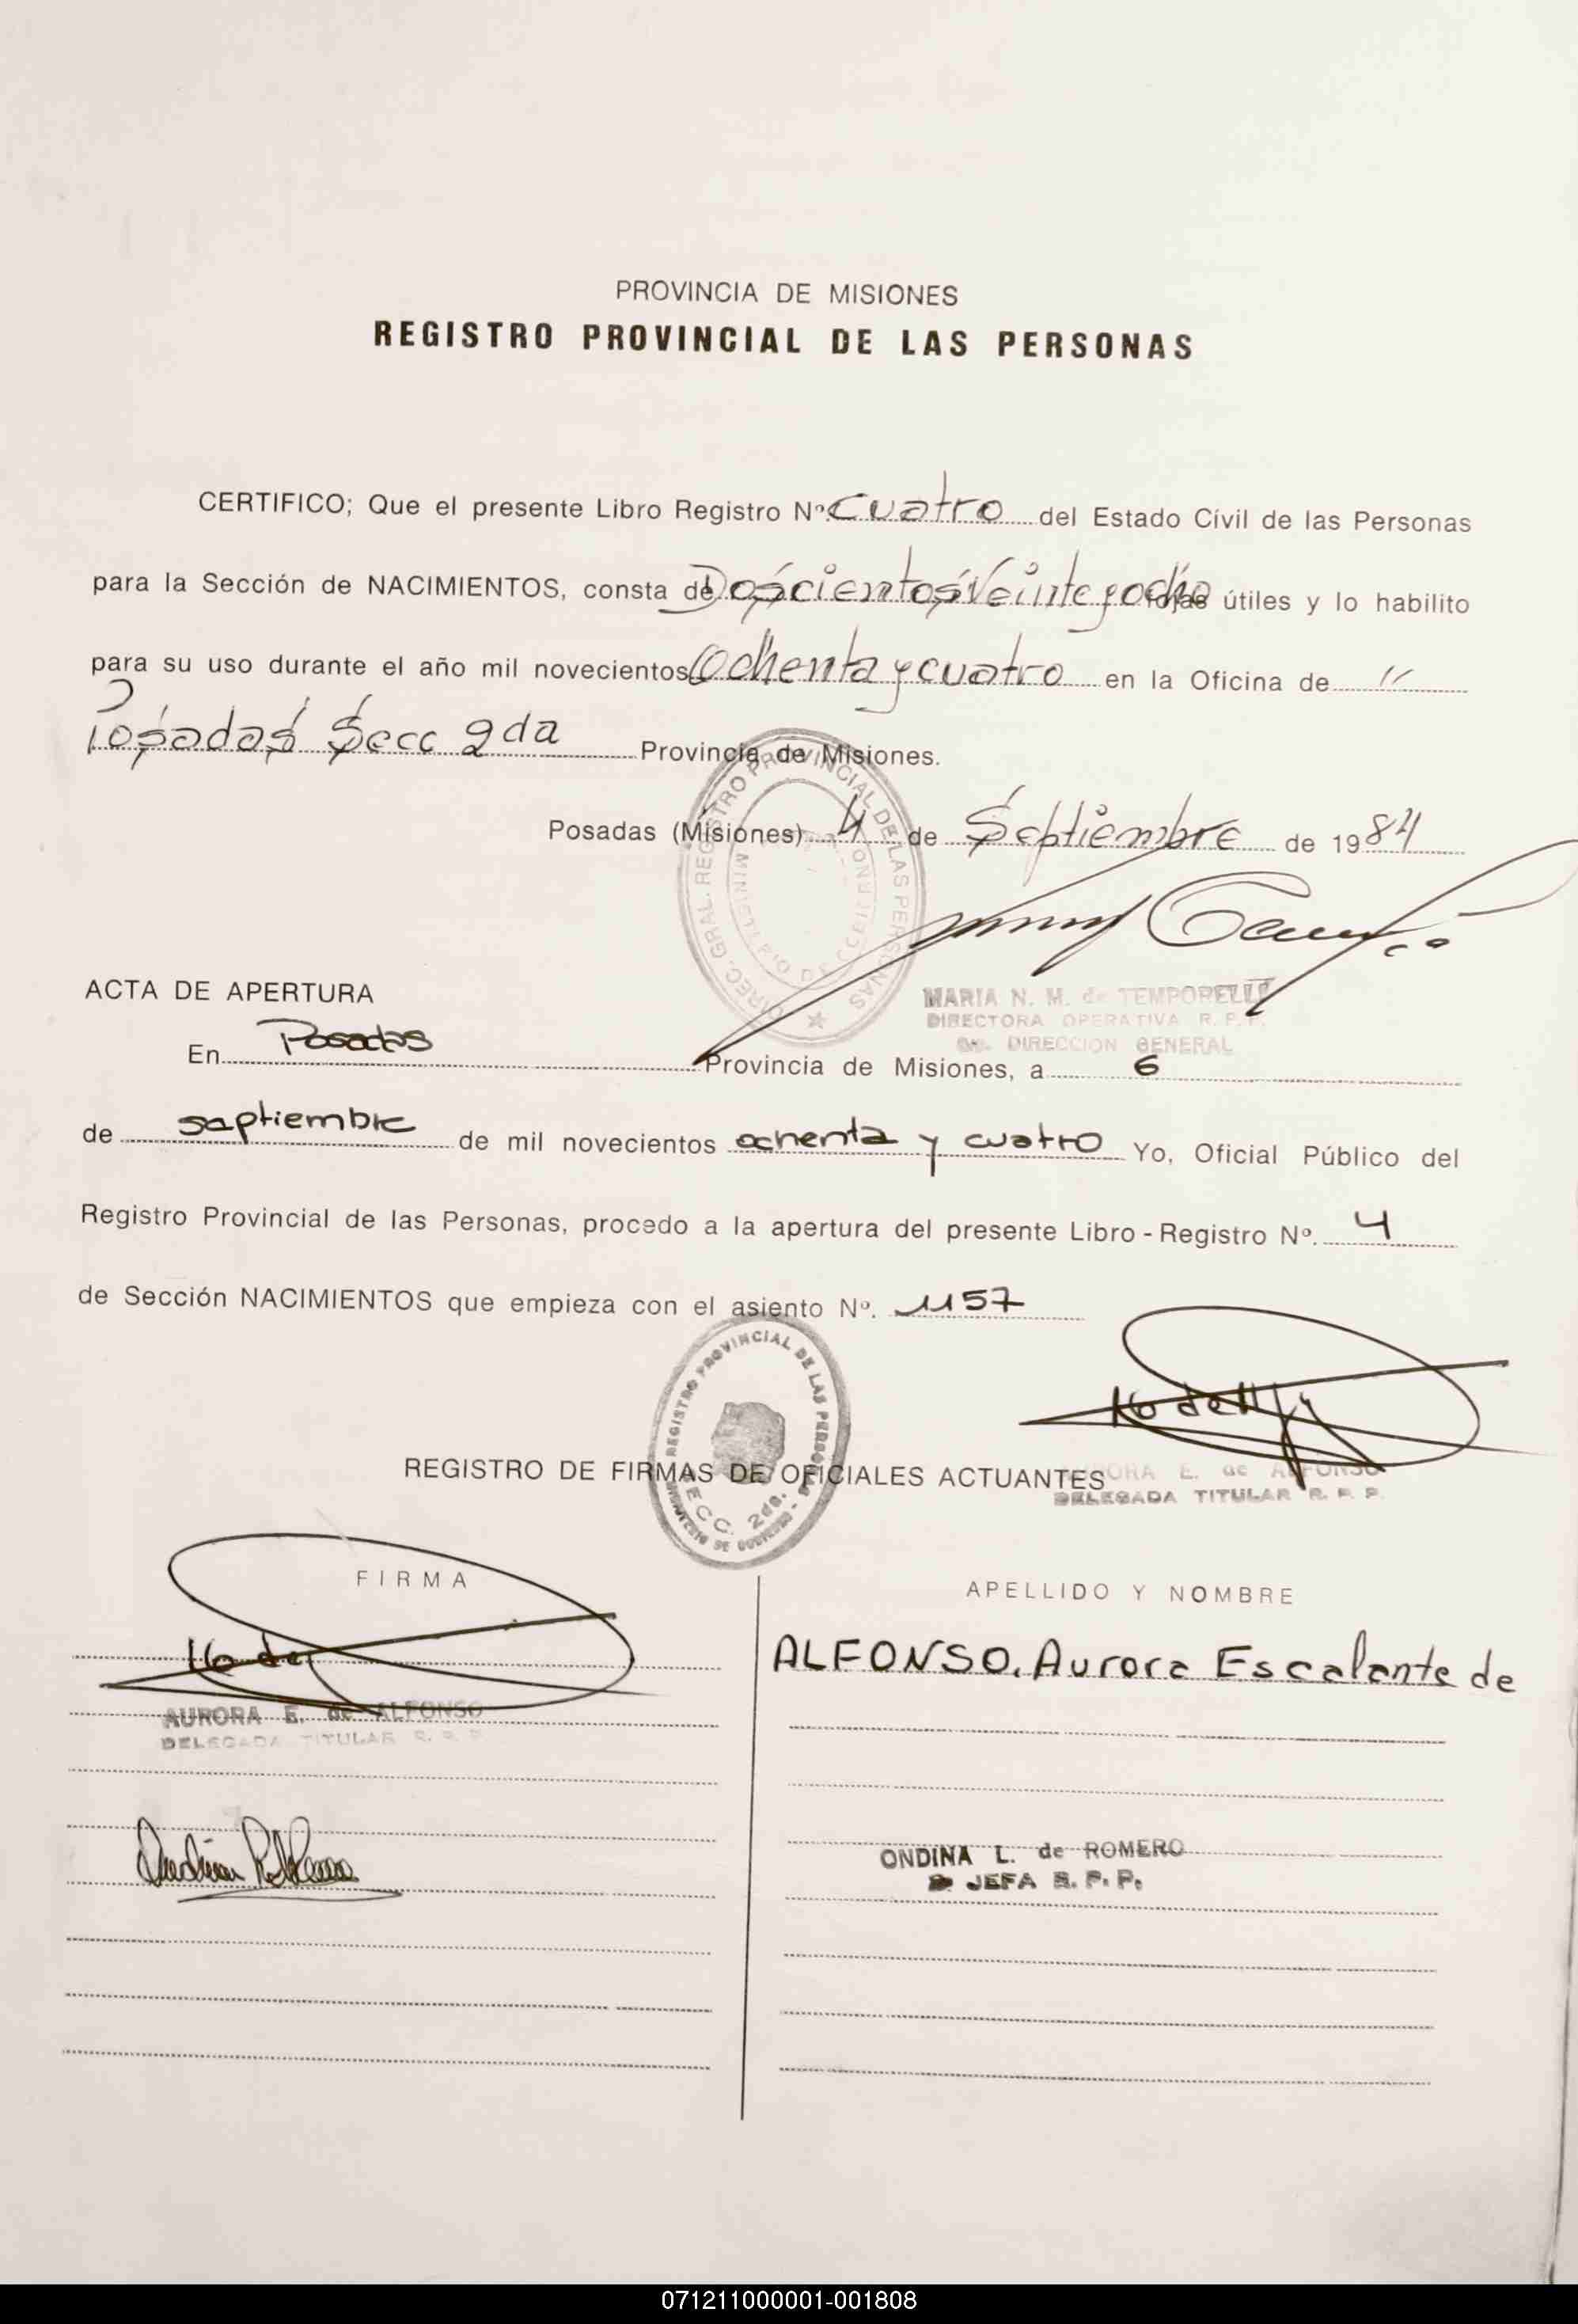 PROVINCIA DE MISIONES
REGISTRO PROVINCIAL DE LAS PERSONAS
CERTIFICO; Que el presente Libro Registro Nº Cuatro del Estado Civil de las Personas
para la Sección de NACIMIENTOS, consta de Doscientos Veinte y ocho fojas útiles y lo habilito
para su uso durante el año mil novecientos Ochenta y cuatro en la Oficina de "
Posadas Secc 2da Provincia de Misiones.
Posadas (Misiones) 4 de Septiembre de 1984
DIREC. GRAL. REGISTRO PROVINCIAL DE LAS PERSONAS
MARIA N. M. de TEMPORELLI
DIRECTORA OPERATIVA R. P. P.
DIRECCION GENERAL
ACTA DE APERTURA
En Posadas Provincia de Misiones, a 6
de septiembre de mil novecientos ochenta y cuatro Yo, Oficial Público del
Registro Provincial de las Personas, procedo a la apertura del presente Libro - Registro Nº. 4
de Sección NACIMIENTOS que empieza con el asiento Nº. 1157
REGISTRO PROVINCIAL DE LAS PERSONAS
SECC. 2da.
MINISTERIO DE GOBIERNO
REGISTRO DE FIRMAS DE OFICIALES ACTUANTES
AURORA E. de ALFONSO
DELEGADA TITULAR R. P. P.
FIRMA
APELLIDO Y NOMBRE
ALFONSO, Aurora Escalante de
AURORA E. de ALFONSO
DELEGADA TITULAR R. P. P.
ONDINA L. de ROMERO
JEFA R. P. P.
071211000001-001808